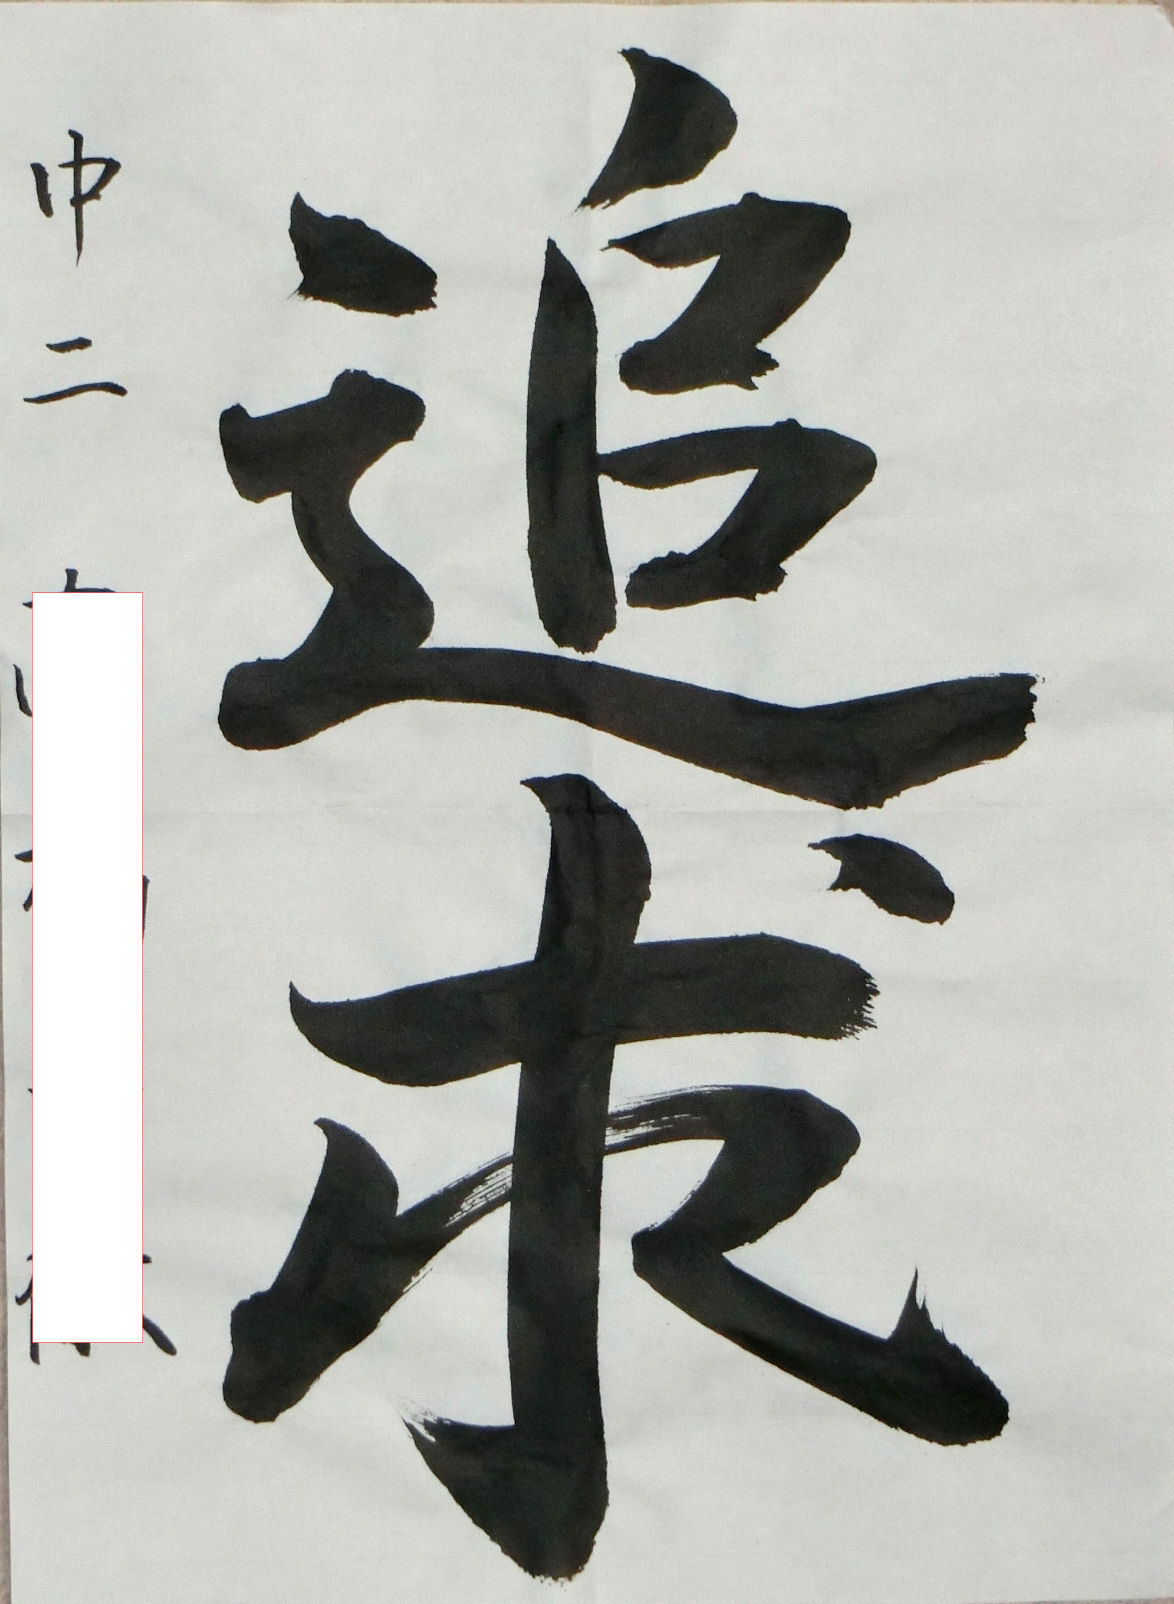 追求
中二